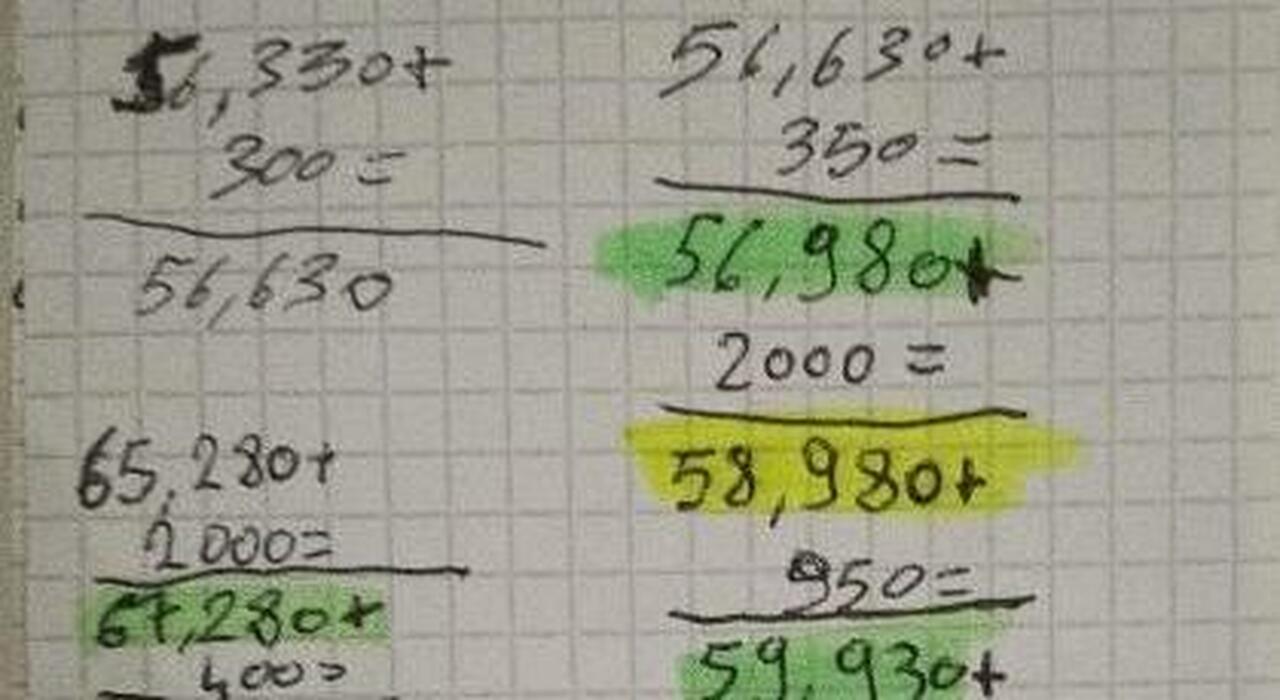 56,330+
300=
56,630
65,280+
2000=
67,280+
400=
56,630+
350=
56,980+
2000=
58,980+
950=
59,930+